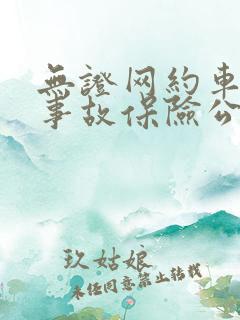 無證网約車
事故保險公
玖姑娘
未经同意禁止转载